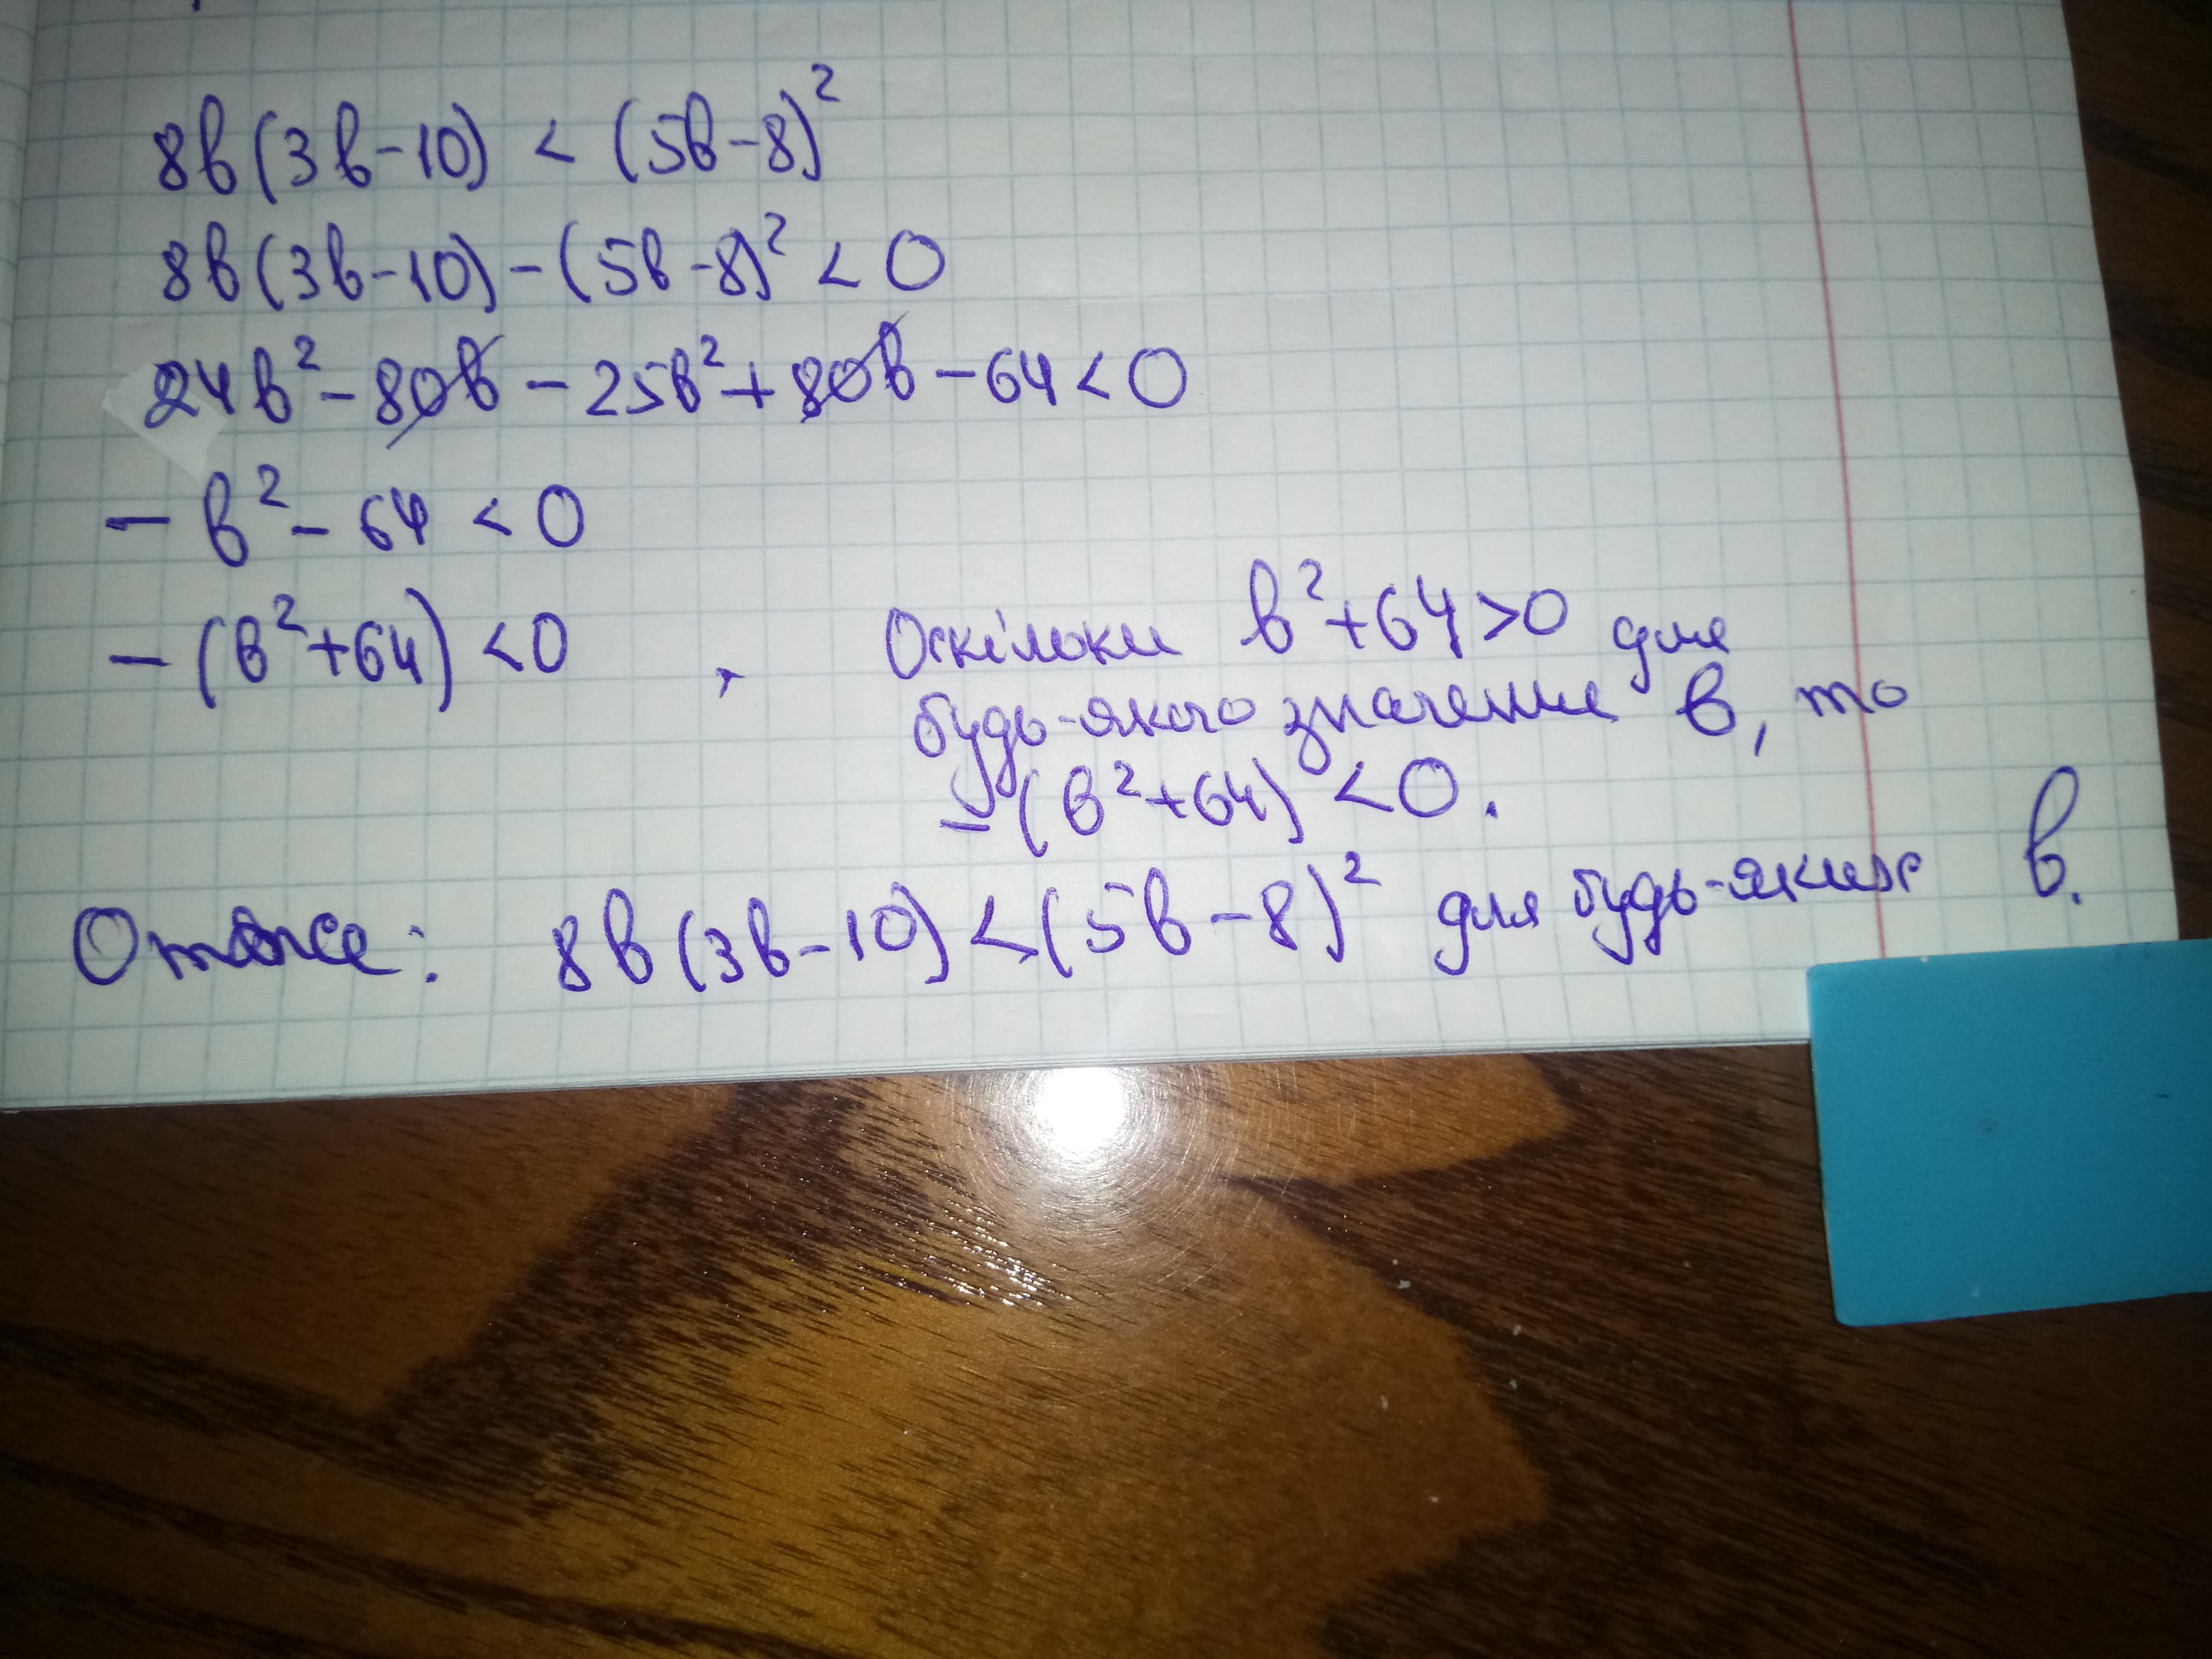 8в(3в-10) < (5в-8)²
8в(3в-10)-(5в-8)² < 0
24в²-80в-25в²+80в-64<0
-в²-64 < 0
-(в²+64)<0 , Оскільки в²+64>0 для
будь-якого значення в, то
-(в²+64)<0.
Отже: 8в(3в-10)<(5в-8)² для будь-яких в.